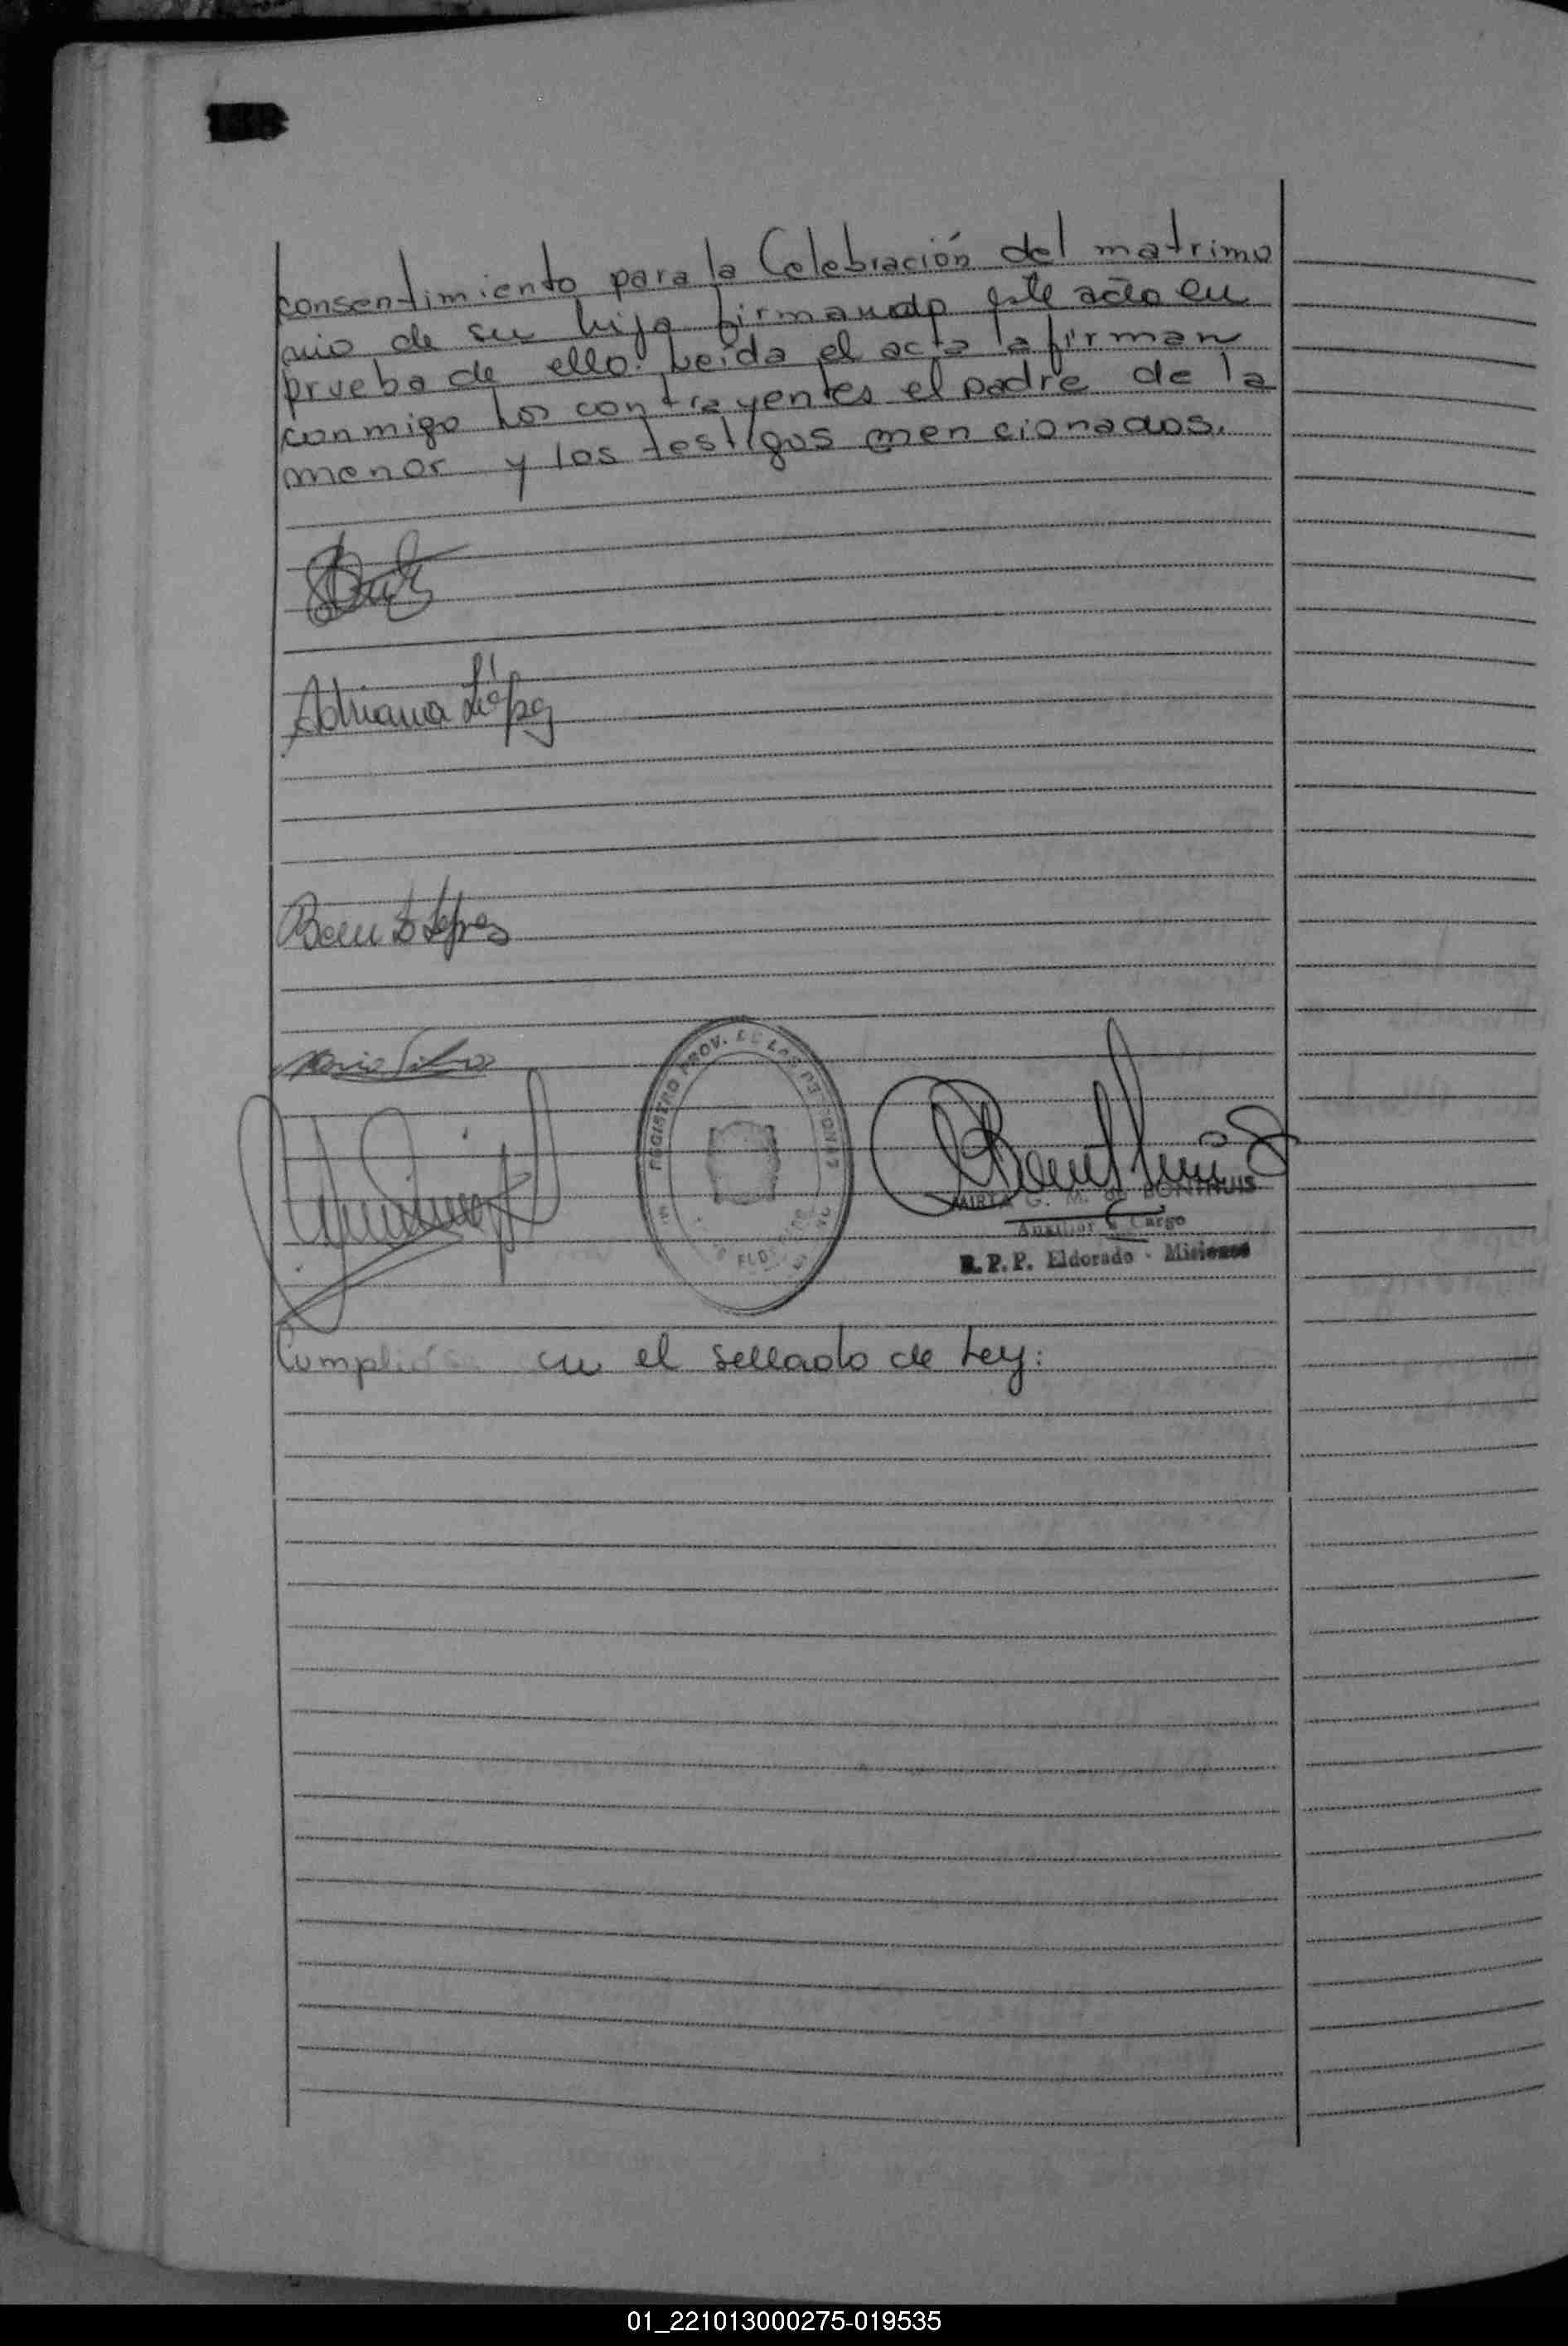 consentimiento para la Celebración del matrimo
nio de su hija firmando este acto en
prueba de ello. Leída el acta la firman
conmigo Los contrayentes el padre de la
menor y los testigos mencionados.
Adriana López
REGISTRO PROV. DE LAS PERSONAS
MIRTA G. M. de BONTHUIS
Auxiliar a Cargo
R.P.P. Eldorado - Misiones
en el sellado de Ley:
01_221013000275-019535